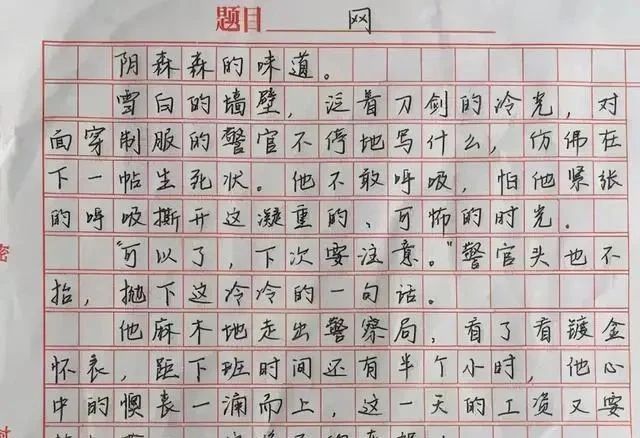 题目 网
阴森森的味道。
雪白的墙壁，泛着刀剑的冷光，对
面穿制服的警官不停地写什么，仿佛在
下一帖生死状。他不敢呼吸，怕他紧张
的呼吸撕开这凝重的、可怖的时光。
“可以了，下次要注意。”警官头也不
抬，抛下这冷冷的一句话。
他麻木地走出警察局，看了看镀金
怀表，距下班时间还有半个小时，他心
中的懊丧一涌而上，这一天的工资又要